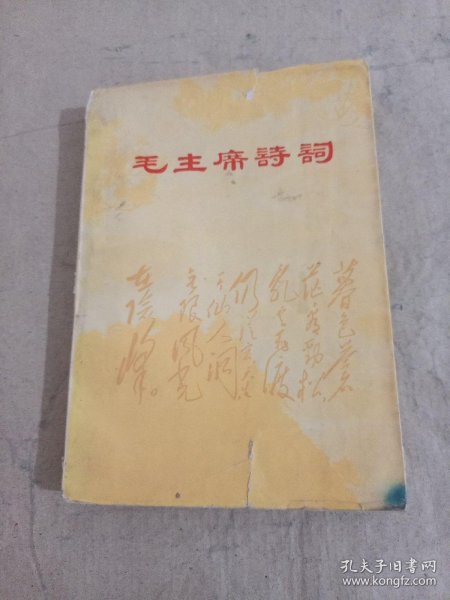 毛主席詩詞
暮色蒼
茫看勁松
亂云飛渡
仍從容天生
一个仙人洞
无限風光
在險峰。
孔夫子旧书网
www.kongfz.com